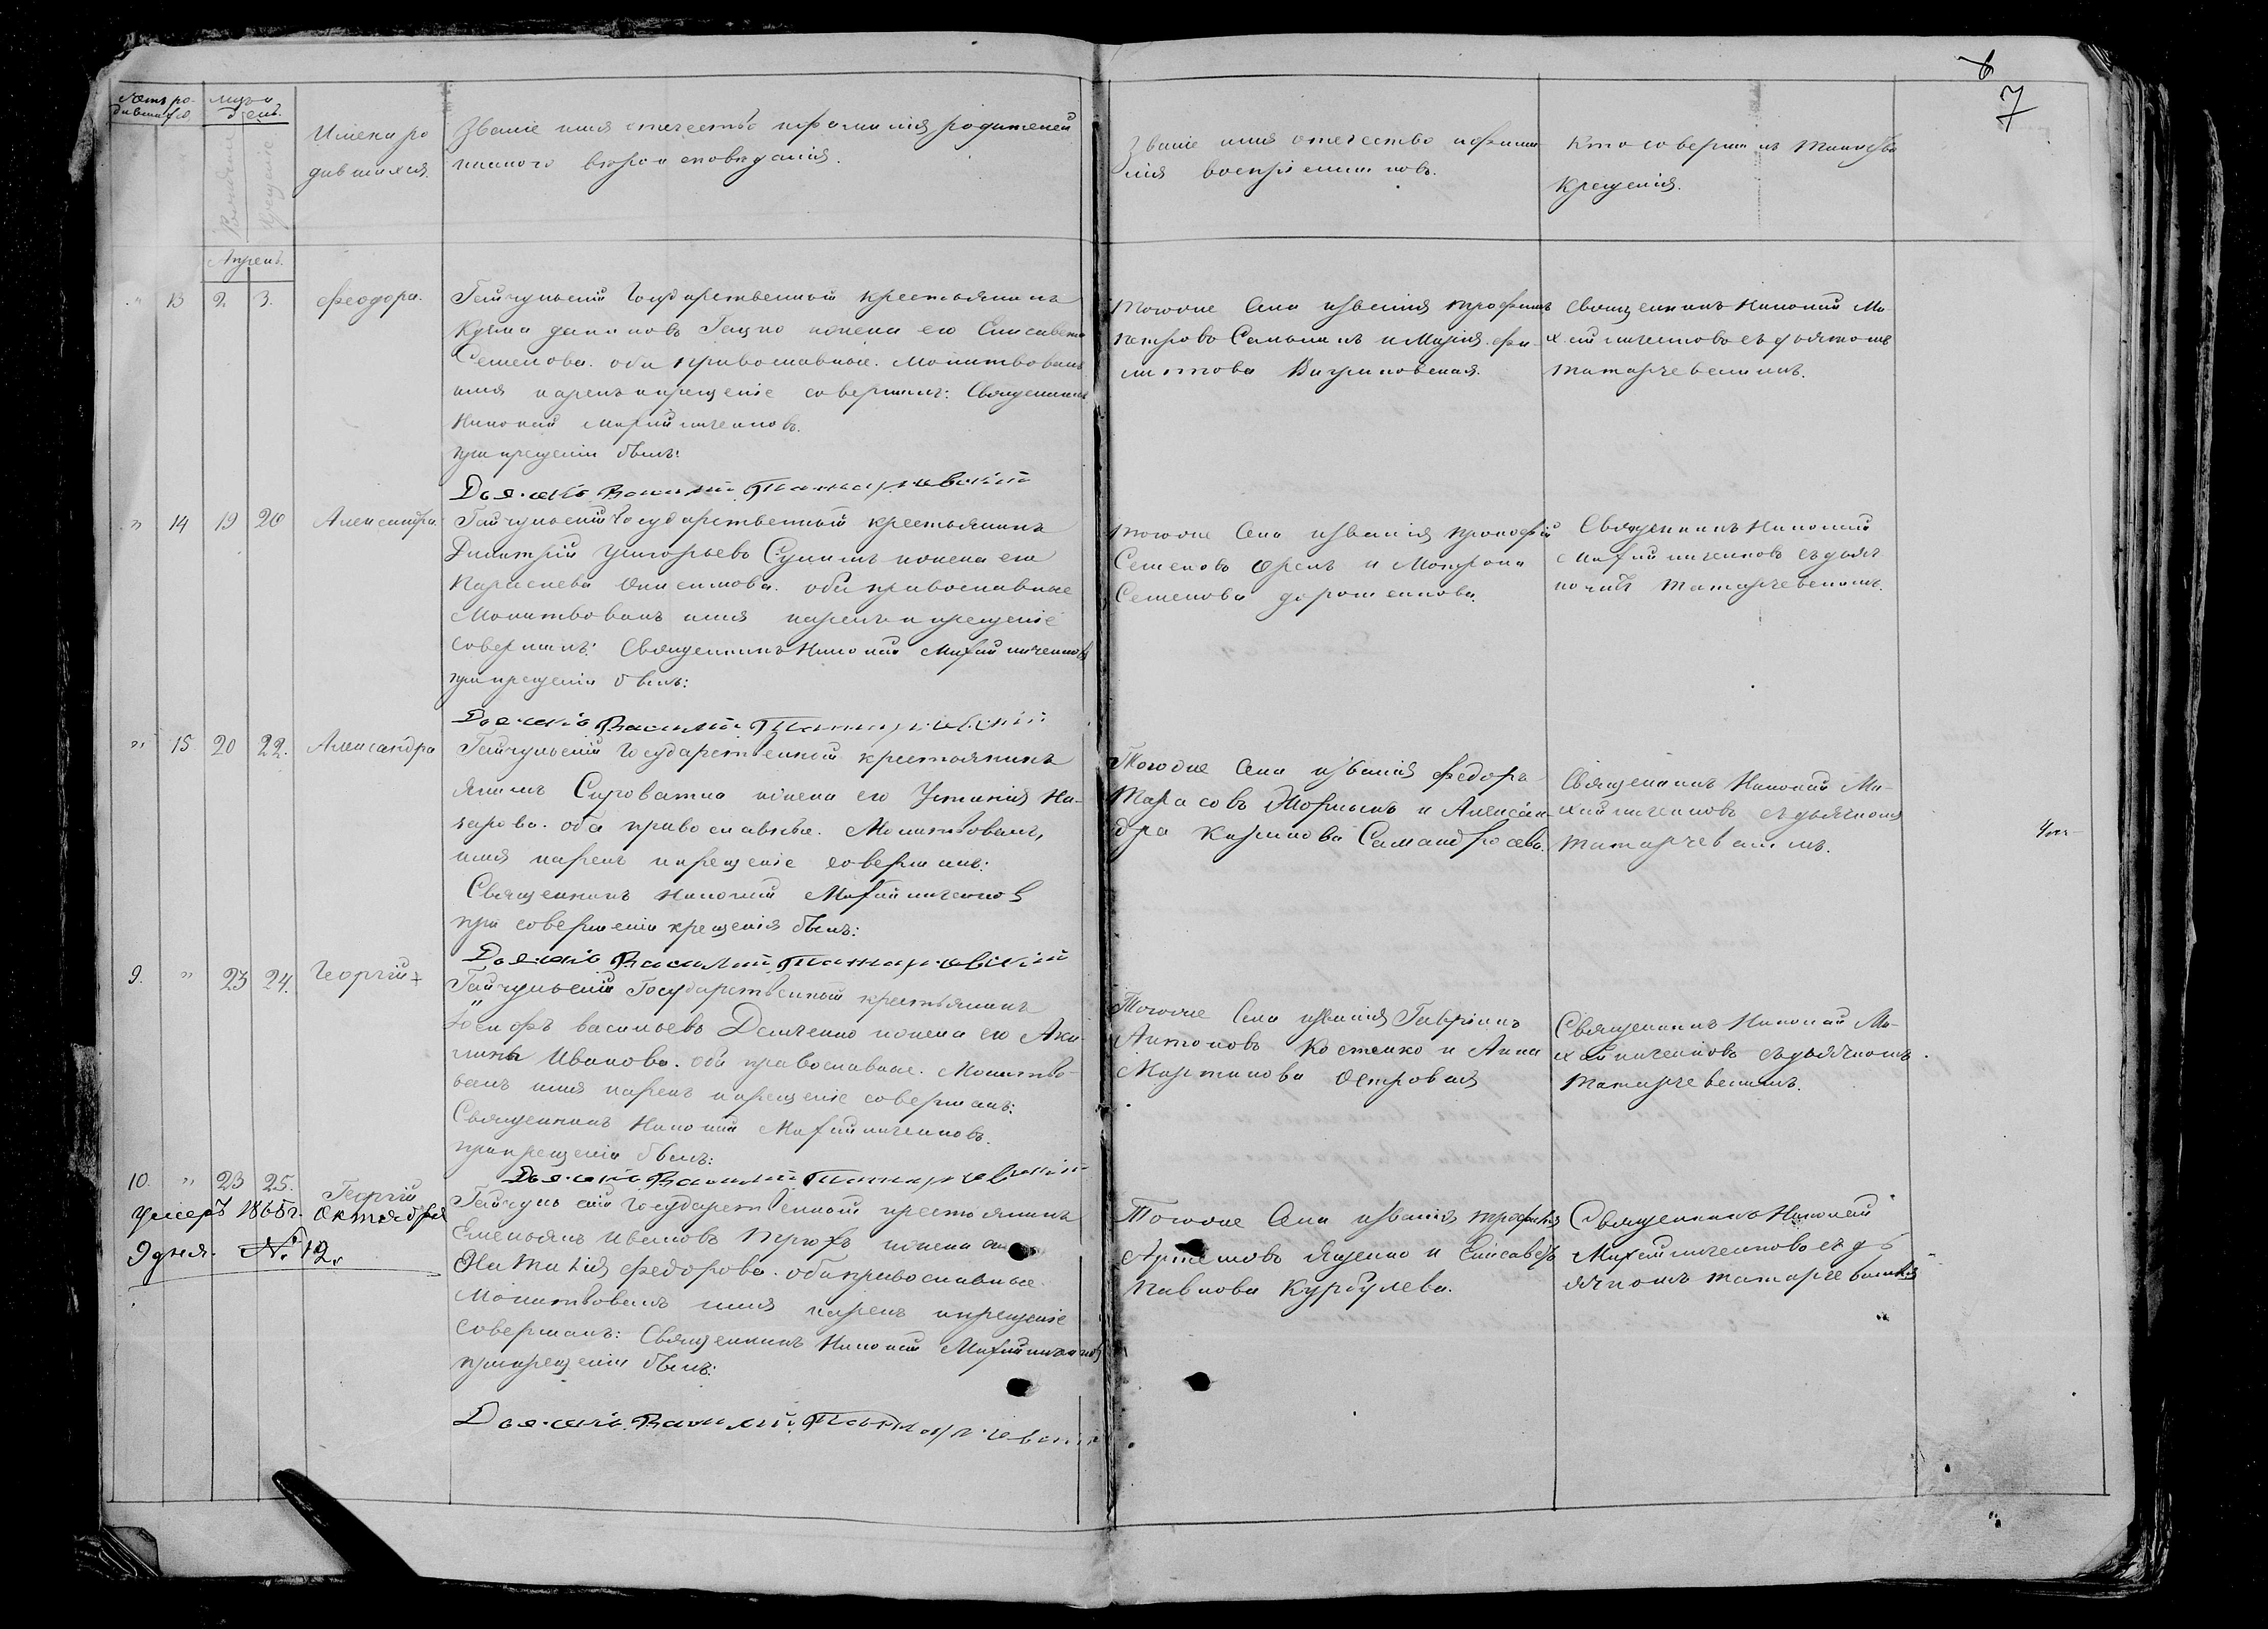 7
Счетъ ро-
дившихся
мѣсяцъ
день.
Рожденіе
Крещеніе
Имена ро
дившихся.
Званіе имя отечество и фамилія родителей
и какого вѣроисповѣданія.
Званіе имя отечество и фами
лія воспріемниковъ.
Кто совершилъ таинство
крещенія.
Апрель.
" 13 2. 3. Феодора.
Гайчульскій Государственный крестьянинъ
Козма Даниловъ Гацко и жена его Елисавета
Семенова. оба православные. Молитвовалъ
имя нарекъ и крещеніе совершилъ: Священникъ
Николай Михайличенковъ.
при крещеніи былъ:
Дьячекъ Василій Татарчевскій
Тогоже Села и званія Трофимъ
Петровъ и Марія Фи-
липова
Священникъ Николай Ми-
хайличенковъ съ дьячкомъ
Татарчевскимъ.
" 14 19 20 Александра
Гайчульскій Государственный крестьянинъ
Димитрій Григорьевъ и жена его
Параскева Онисимова. оба православные
Молитвовалъ имя нарекъ и крещеніе
совершилъ: Священникъ Николай Михайличенковъ
при крещеніи былъ:
Дьячекъ Василій Татарчевскій
Тогоже Села и званія Прокофій
Семеновъ Орелъ и Мотрона
Семенова Дорошенкова.
Священникъ Николай
Михайличенковъ съ дьяч
комъ Татарчевскимъ.
" 15 20 22. Александра
Гайчульскій Государственный крестьянинъ
Якимъ Сироватка и жена его Устинія На-
зарова. оба православные. Молитвовалъ,
имя нарекъ и крещеніе совершилъ:
Священникъ Николай Михайличенковъ
при совершеніи крещенія былъ:
Дьячекъ Василій Татарчевскій
Тогоже Села и званія Федоръ
Тарасовъ и Алексан-
дра Карпова
Священникъ Николай Ми-
хайличенковъ съ дьячкомъ
Татарчевскимъ.
9. " 23 24. Георгій +
Гайчульскій Государственный крестьянинъ
Іосифъ Васильевъ Демченко и жена его Аки-
лина Иванова. оба православные. Молитво-
валъ имя нарекъ и крещеніе совершилъ:
Священникъ Николай Михайличенковъ.
при крещеніи былъ:
Дьячекъ Василій Татарчевскій
Тогоже Села и званія Гавріилъ
Антоновъ Костенко и Анна
Мартинова Островая
Священникъ Николай Ми-
хайличенковъ съ дьячкомъ.
Татарчевскимъ.
10. " 23 25. Георгій
умеръ 1865 г. Октября
9 дня. № 12.
Гайчульскій Государственный крестьянинъ
Емельянъ Ивановъ и жена его
Наталія Федорова. оба православные.
Молитвовалъ имя нарекъ и крещеніе
совершилъ: Священникъ Николай Михайличенковъ
при крещеніи былъ:
Дьячекъ Василій Татарчевскій
Тогоже Села и званія Трофимъ
Артемовъ Яценко и Елисавета
Павлова Курбулева.
Священникъ Николай
Михайличенковъ съ дь
ячкомъ Татарчевскимъ